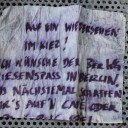 AUF EIN WIEDERSEHEN
IM KIEZ!
ICH WÜNSCHE DER
RIESENSPASS IN BERLIN,
NÄCHSTEMAL SCHAFFEN
WIR'S AUF'N CAFE ODER